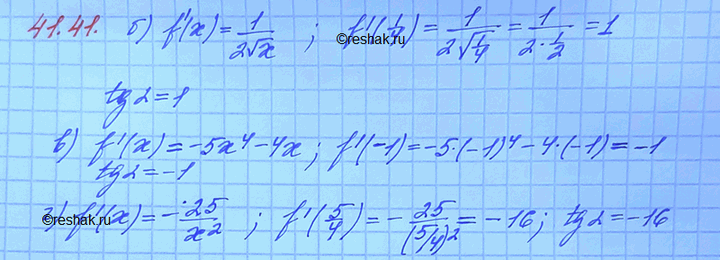 41.41. б) f'(x) = 1/(2√x) ; f'(1/4) = 1/(2√(1/4)) = 1/(2·1/2) = 1
tg α = 1
в) f'(x) = -5x⁴ - 4x ; f'(-1) = -5·(-1)⁴ - 4·(-1) = -1
tg α = -1
г) f'(x) = -25/x² ; f'(5/4) = -25/(5/4)² = -16 ; tg α = -16
©reshak.ru
©reshak.ru